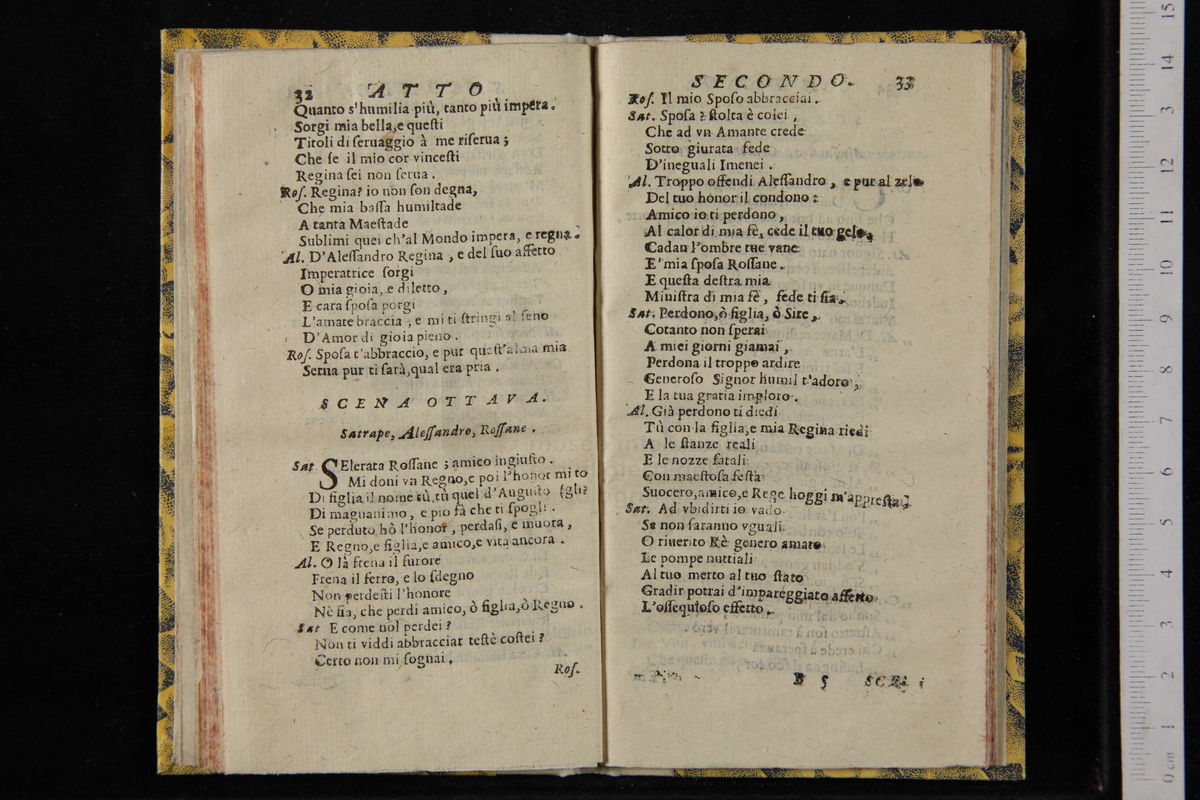 32 ATTO
Quanto s'humilia più, tanto più impera.
Sorgi mia bella,e queſti
Titoli di ſeruaggio à me riſerua ;
Che ſe il mio cor vinceſti
Regina ſei non ſerua .
Roſ. Regina? io non ſon degna,
Che mia baſſa humiltade
A tanta Maeſtade
Sublimi quei ch'al Mondo impera, e regna.
Al. D'Aleſſandro Regina , e del ſuo affetto
Imperatrice ſorgi
O mia gioia, e diletto ,
E cara ſpoſa porgi
L'amate braccia , e mi ti ſtringi al ſeno
D'Amor di gioia pieno .
Roſ. Spoſa t'abbraccio, e pur queſt'alma mia
Serua pur ti ſarà,qual era pria .
SCENA OTTAVA.
Satrape, Aleſſandro, Roſſane .
Sat SElerata Roſſane ; amico ingiuſto .
Mi doni vn Regno,e poi l'honor mi to
Di figlia il nome tù,tù quel d'Auguſto (gli?
Di magnanimo , e pio fà che ti ſpogli .
Se perduto hò l'honor , perdaſi, e muora ,
E Regno,e figlia,e amico,e vita ancora .
Al. O là frena il furore
Frena il ferro, e lo ſdegno
Non perdeſti l'honore
Nè ſia, che perdi amico, ò figlia,ò Regno .
Sat E come nol perdei ?
Non ti viddi abbracciar teſtè coſtei ?
Certo non mi ſognai .
Roſ.
SECONDO. 33
Roſ. Il mio Spoſo abbracciai .
Sat. Spoſa ? ſtolta è colei ,
Che ad vn Amante crede
Sotto giurata fede
D'ineguali Imenei .
Al. Troppo offendi Aleſſandro , e pur al zelo
Del tuo honor il condono :
Amico io ti perdono ,
Al calor di mia fè, cede il tuo gelo,
Cadan l'ombre tue vane
E' mia ſpoſa Roſſane .
E queſta deſtra mia
Miniſtra di mia fè , fede ti ſia .
Sat. Perdono,ò figlia, ò Sire ,
Cotanto non ſperai
A miei giorni giamai ,
Perdona il troppo ardire
Generoſo Signor humil t'adoro ;
E la tua gratia imploro .
Al. Già perdono ti diedi
Tù con la figlia,e mia Regina riedi
A le ſtanze reali
E le nozze fatali
Con maeſtoſa feſta
Suocero,amico,e Rege hoggi m'appreſta;
Sat. Ad vbidirti io vado
Se non ſaranno vguali
O riuerito Rè genero amato
Le pompe nuttiali
Al tuo merto al tuo ſtato
Gradir potrai d'impareggiato affetto
L'oſſequioſo effetto .
B 5 SCE